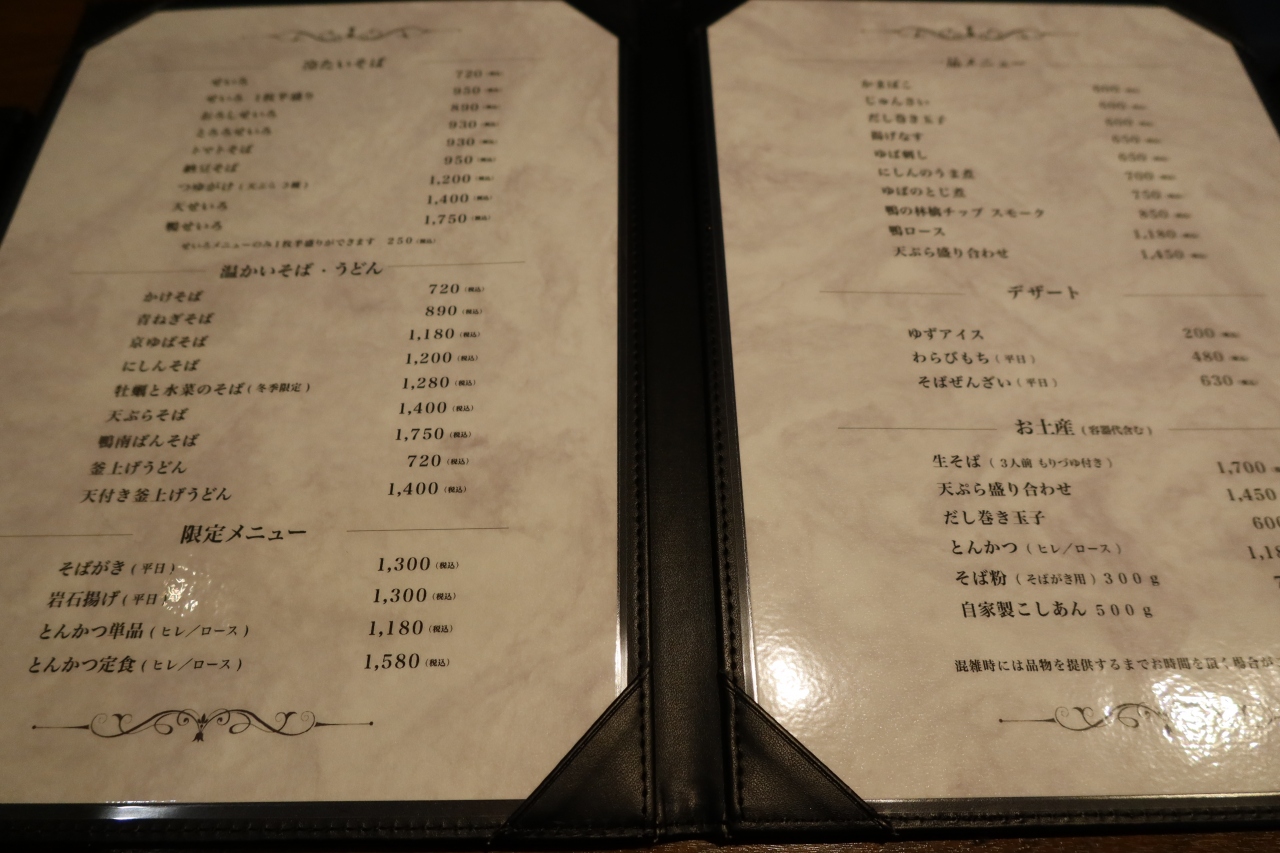 冷たいそば
せいろ 720(税込)
せいろ 1枚半盛り 950(税込)
おろしせいろ 890(税込)
とろろせいろ 930(税込)
トマトそば 930(税込)
納豆そば 950(税込)
つゆがけ(天ぷら3種) 1,200(税込)
天せいろ 1,400(税込)
鴨せいろ 1,750(税込)
せいろメニューのみ1枚半盛りができます 250(税込)
温かいそば・うどん
かけそば 720(税込)
青ねぎそば 890(税込)
京ゆばそば 1,180(税込)
にしんそば 1,200(税込)
牡蠣と水菜のそば(冬季限定) 1,280(税込)
天ぷらそば 1,400(税込)
鴨南ばんそば 1,750(税込)
釜上げうどん 720(税込)
天付き釜上げうどん 1,400(税込)
限定メニュー
そばがき(平日) 1,300(税込)
岩石揚げ(平日) 1,300(税込)
とんかつ単品(ヒレ/ロース) 1,180(税込)
とんかつ定食(ヒレ/ロース) 1,580(税込)
メニュー
かまぼこ
じゅんさい
だし巻き玉子 600
揚げなす 650
ゆば刺し 650
にしんのうま煮 700
ゆばのとじ煮 750
鴨の林檎チップ スモーク 850
鴨ロース 1,180
天ぷら盛り合わせ 1,450
デザート
ゆずアイス 200
わらびもち(平日) 480
そばぜんざい(平日) 630
お土産(容器代含む)
生そば(3人前 もりづゆ付き) 1,700
天ぷら盛り合わせ 1,450
だし巻き玉子 600
とんかつ(ヒレ/ロース) 1,18
そば粉(そばがき用)300g 7
自家製こしあん 500g
混雑時には品物を提供するまでお時間を頂く場合が